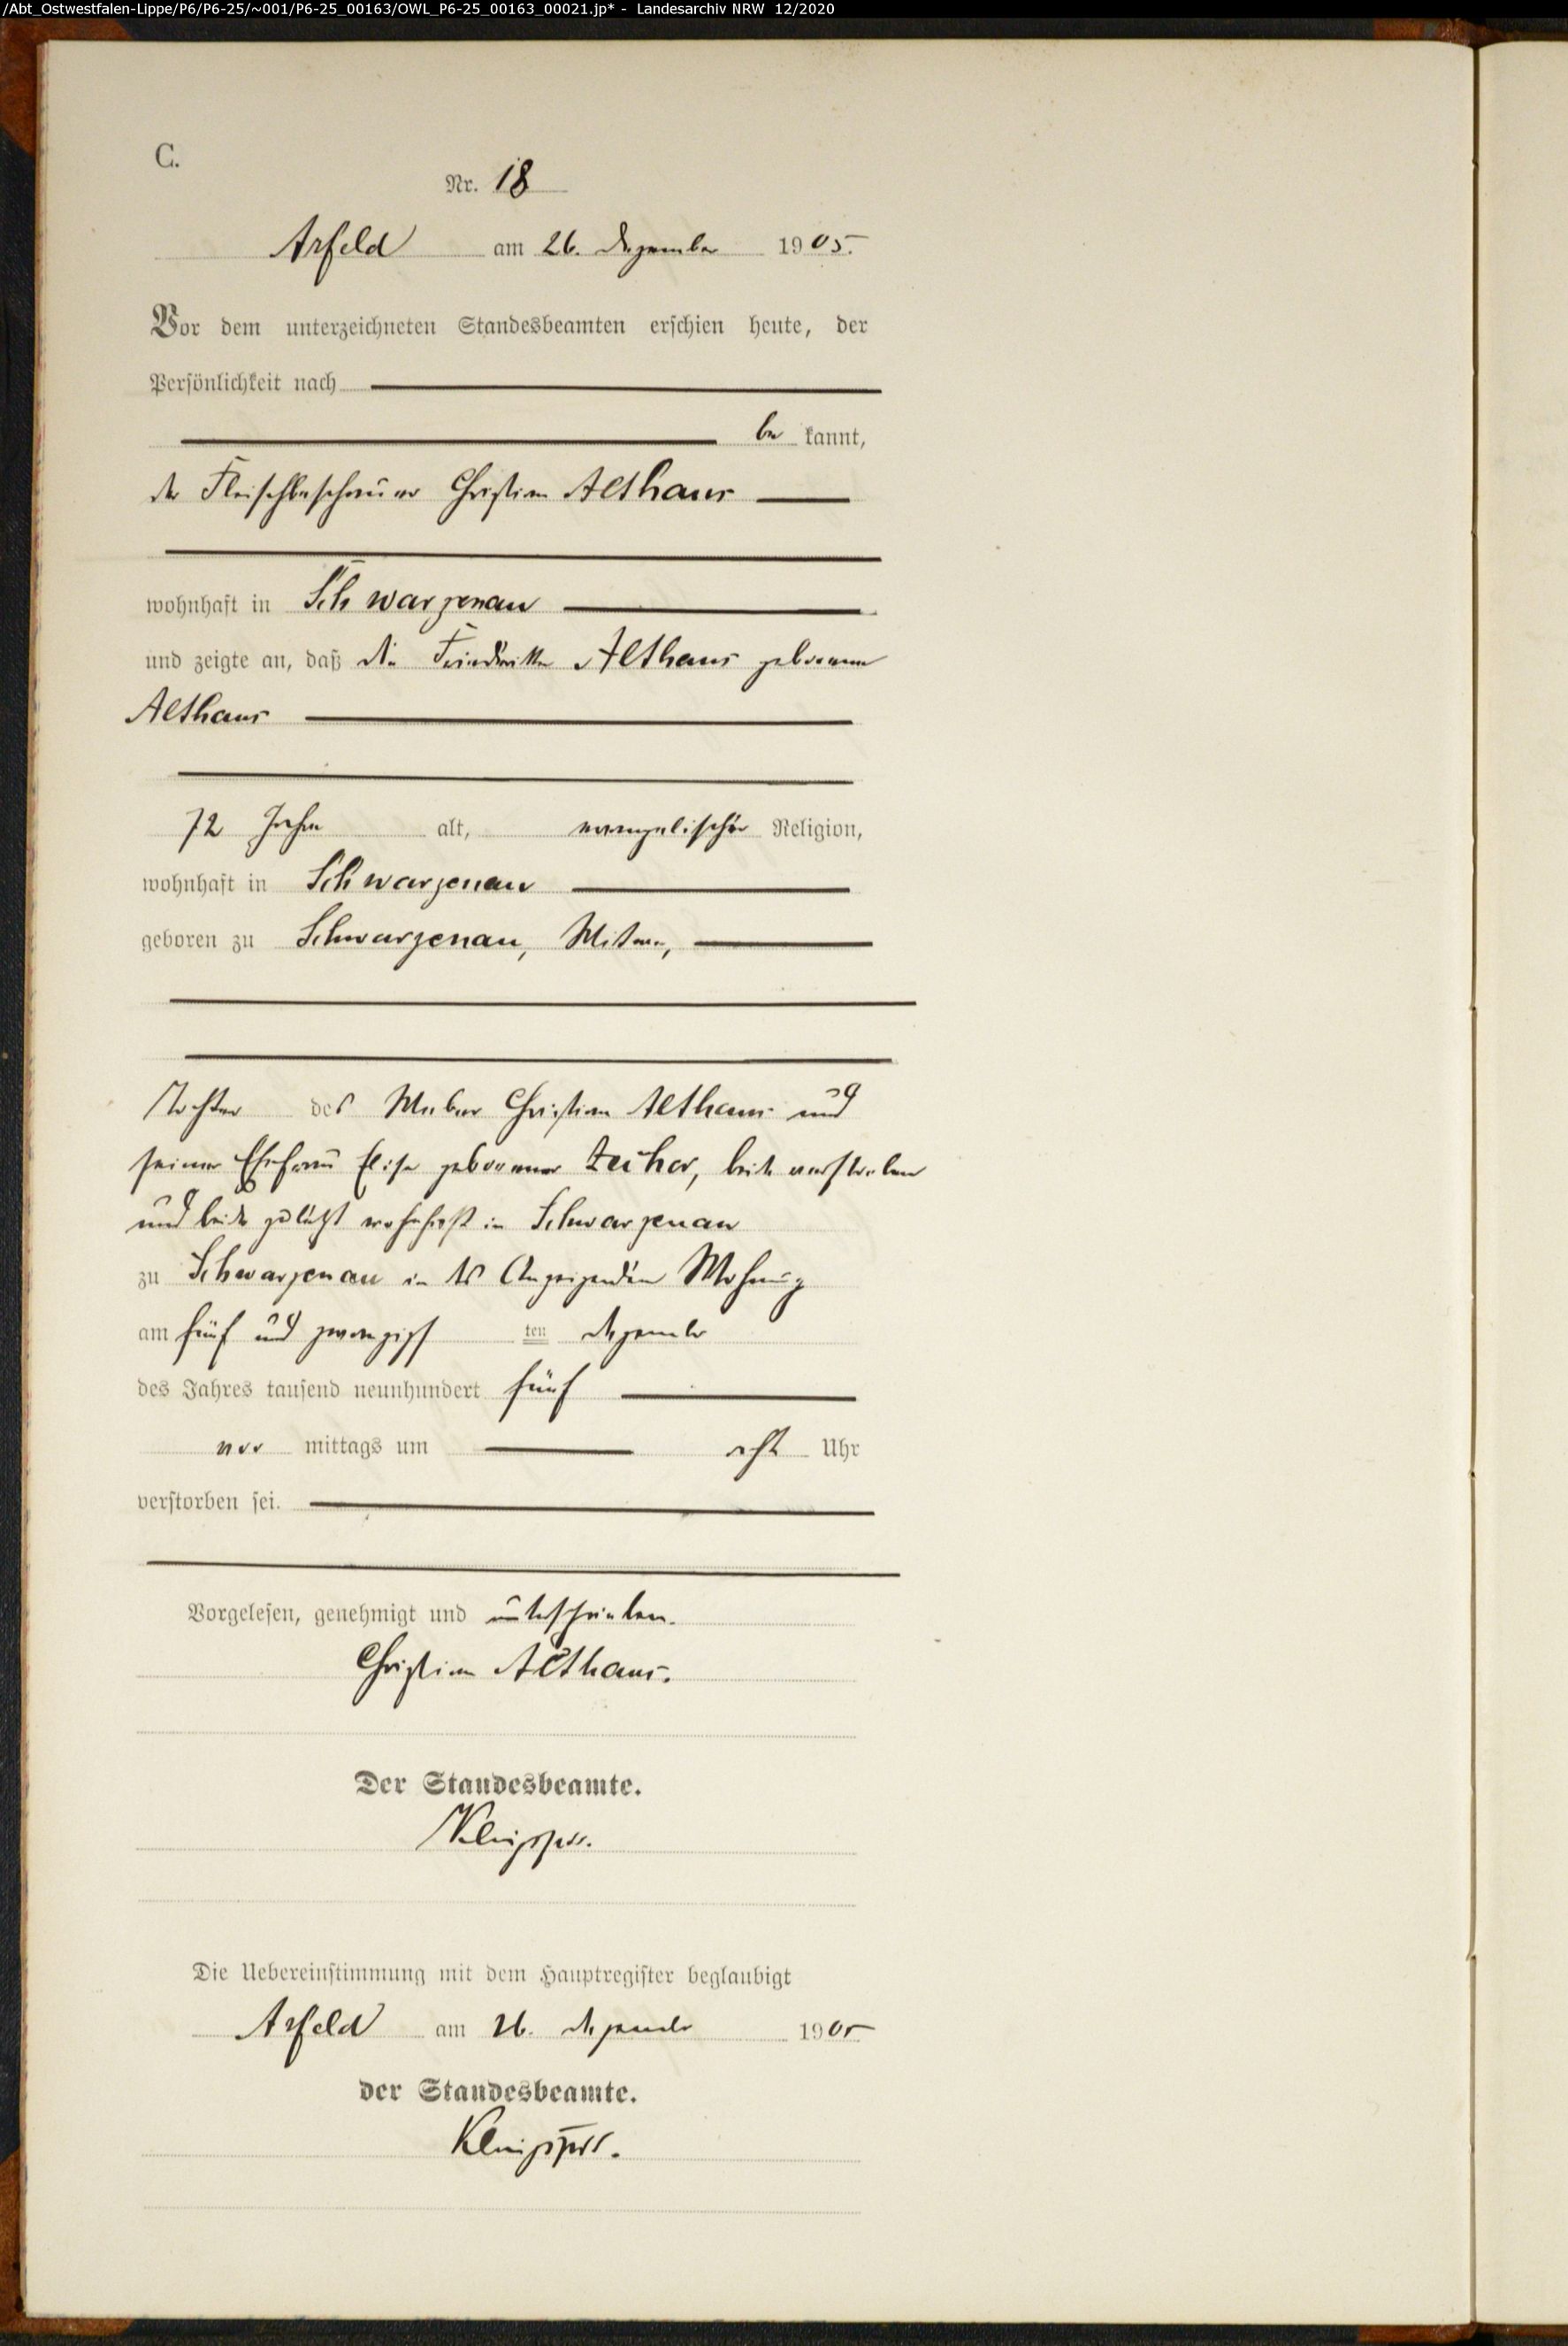 /Abt_Ostwestfalen-Lippe/P6/P6-25/~001/P6-25_00163/OWL_P6-25_00163_00021.jp* - Landesarchiv NRW 12/2020
C.
Nr. 18
Arfeld am 26. Dezember 1905.
Vor dem unterzeichneten Standesbeamten erschien heute, der
Persönlichkeit nach
be kannt,
der Fleischbeschauer Christian Althaus
wohnhaft in Schwarzenau
und zeigte an, daß die Friedrike Althaus geborene
Althaus
72 Jahre alt, evangelischer Religion,
wohnhaft in Schwarzenau
geboren zu Schwarzenau, Witwe,
Tochter des Weber Christian Althaus und
seiner Ehefrau Elise geborener beide verstorben
und beide zuletzt wohnhaft in Schwarzenau
zu Schwarzenau in des Anzeigenden Wohnung
am fünf und zwanzigs ten Dezember
des Jahres tausend neunhundert fünf
vor mittags um acht Uhr
verstorben sei.
Vorgelesen, genehmigt und unterschrieben.
Christian Althaus.
Der Standesbeamte.
Die Uebereinstimmung mit dem Hauptregister beglaubigt
Arfeld am 26. Dezember 1905
der Standesbeamte.